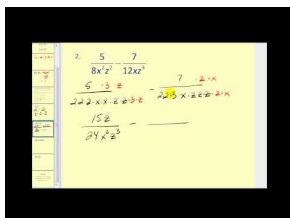 2. 5/8x²z² − 7/12xz³
5 ·3 z / 2·2·2·x·x·z·z·3·z − 7 ·2·x / 2·2·3·x·z·z·z·2·x
15z / 24x²z³ −